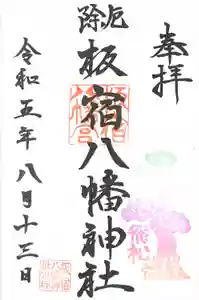 奉拝
飛松
厄除
板宿八幡神社
令和五年八月十三日